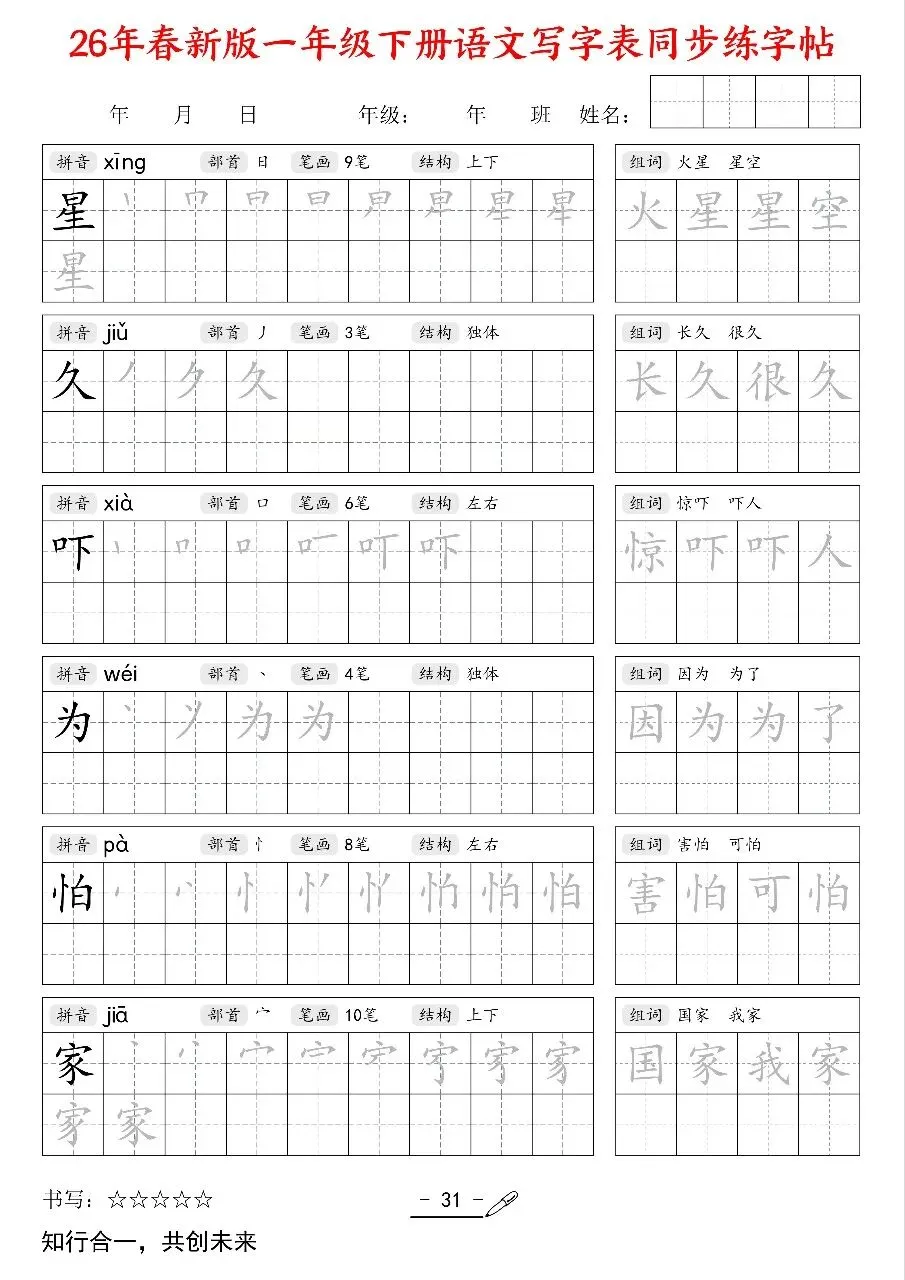 26年春新版一年级下册语文写字表同步练字帖
年 月 日 年级： 年 班 姓名：
拼音 xīng 部首 日 笔画 9笔 结构 上下
星
星
组词 火星 星空
火 星 星 空
拼音 jiǔ 部首 丿 笔画 3笔 结构 独体
久 丿 夕 久
组词 长久 很久
长 久 很 久
拼音 xià 部首 口 笔画 6笔 结构 左右
吓 吓
组词 惊吓 吓人
惊 吓 吓 人
拼音 wéi 部首 丶 笔画 4笔 结构 独体
为 为 为
组词 因为 为了
因 为 为 了
拼音 pà 部首 忄 笔画 8笔 结构 左右
怕 怕
组词 害怕 可怕
害 怕 可 怕
拼音 jiā 部首 宀 笔画 10笔 结构 上下
家
家
组词 国家 我家
国 家 我 家
书写：☆☆☆☆☆
- 31 -
知行合一，共创未来